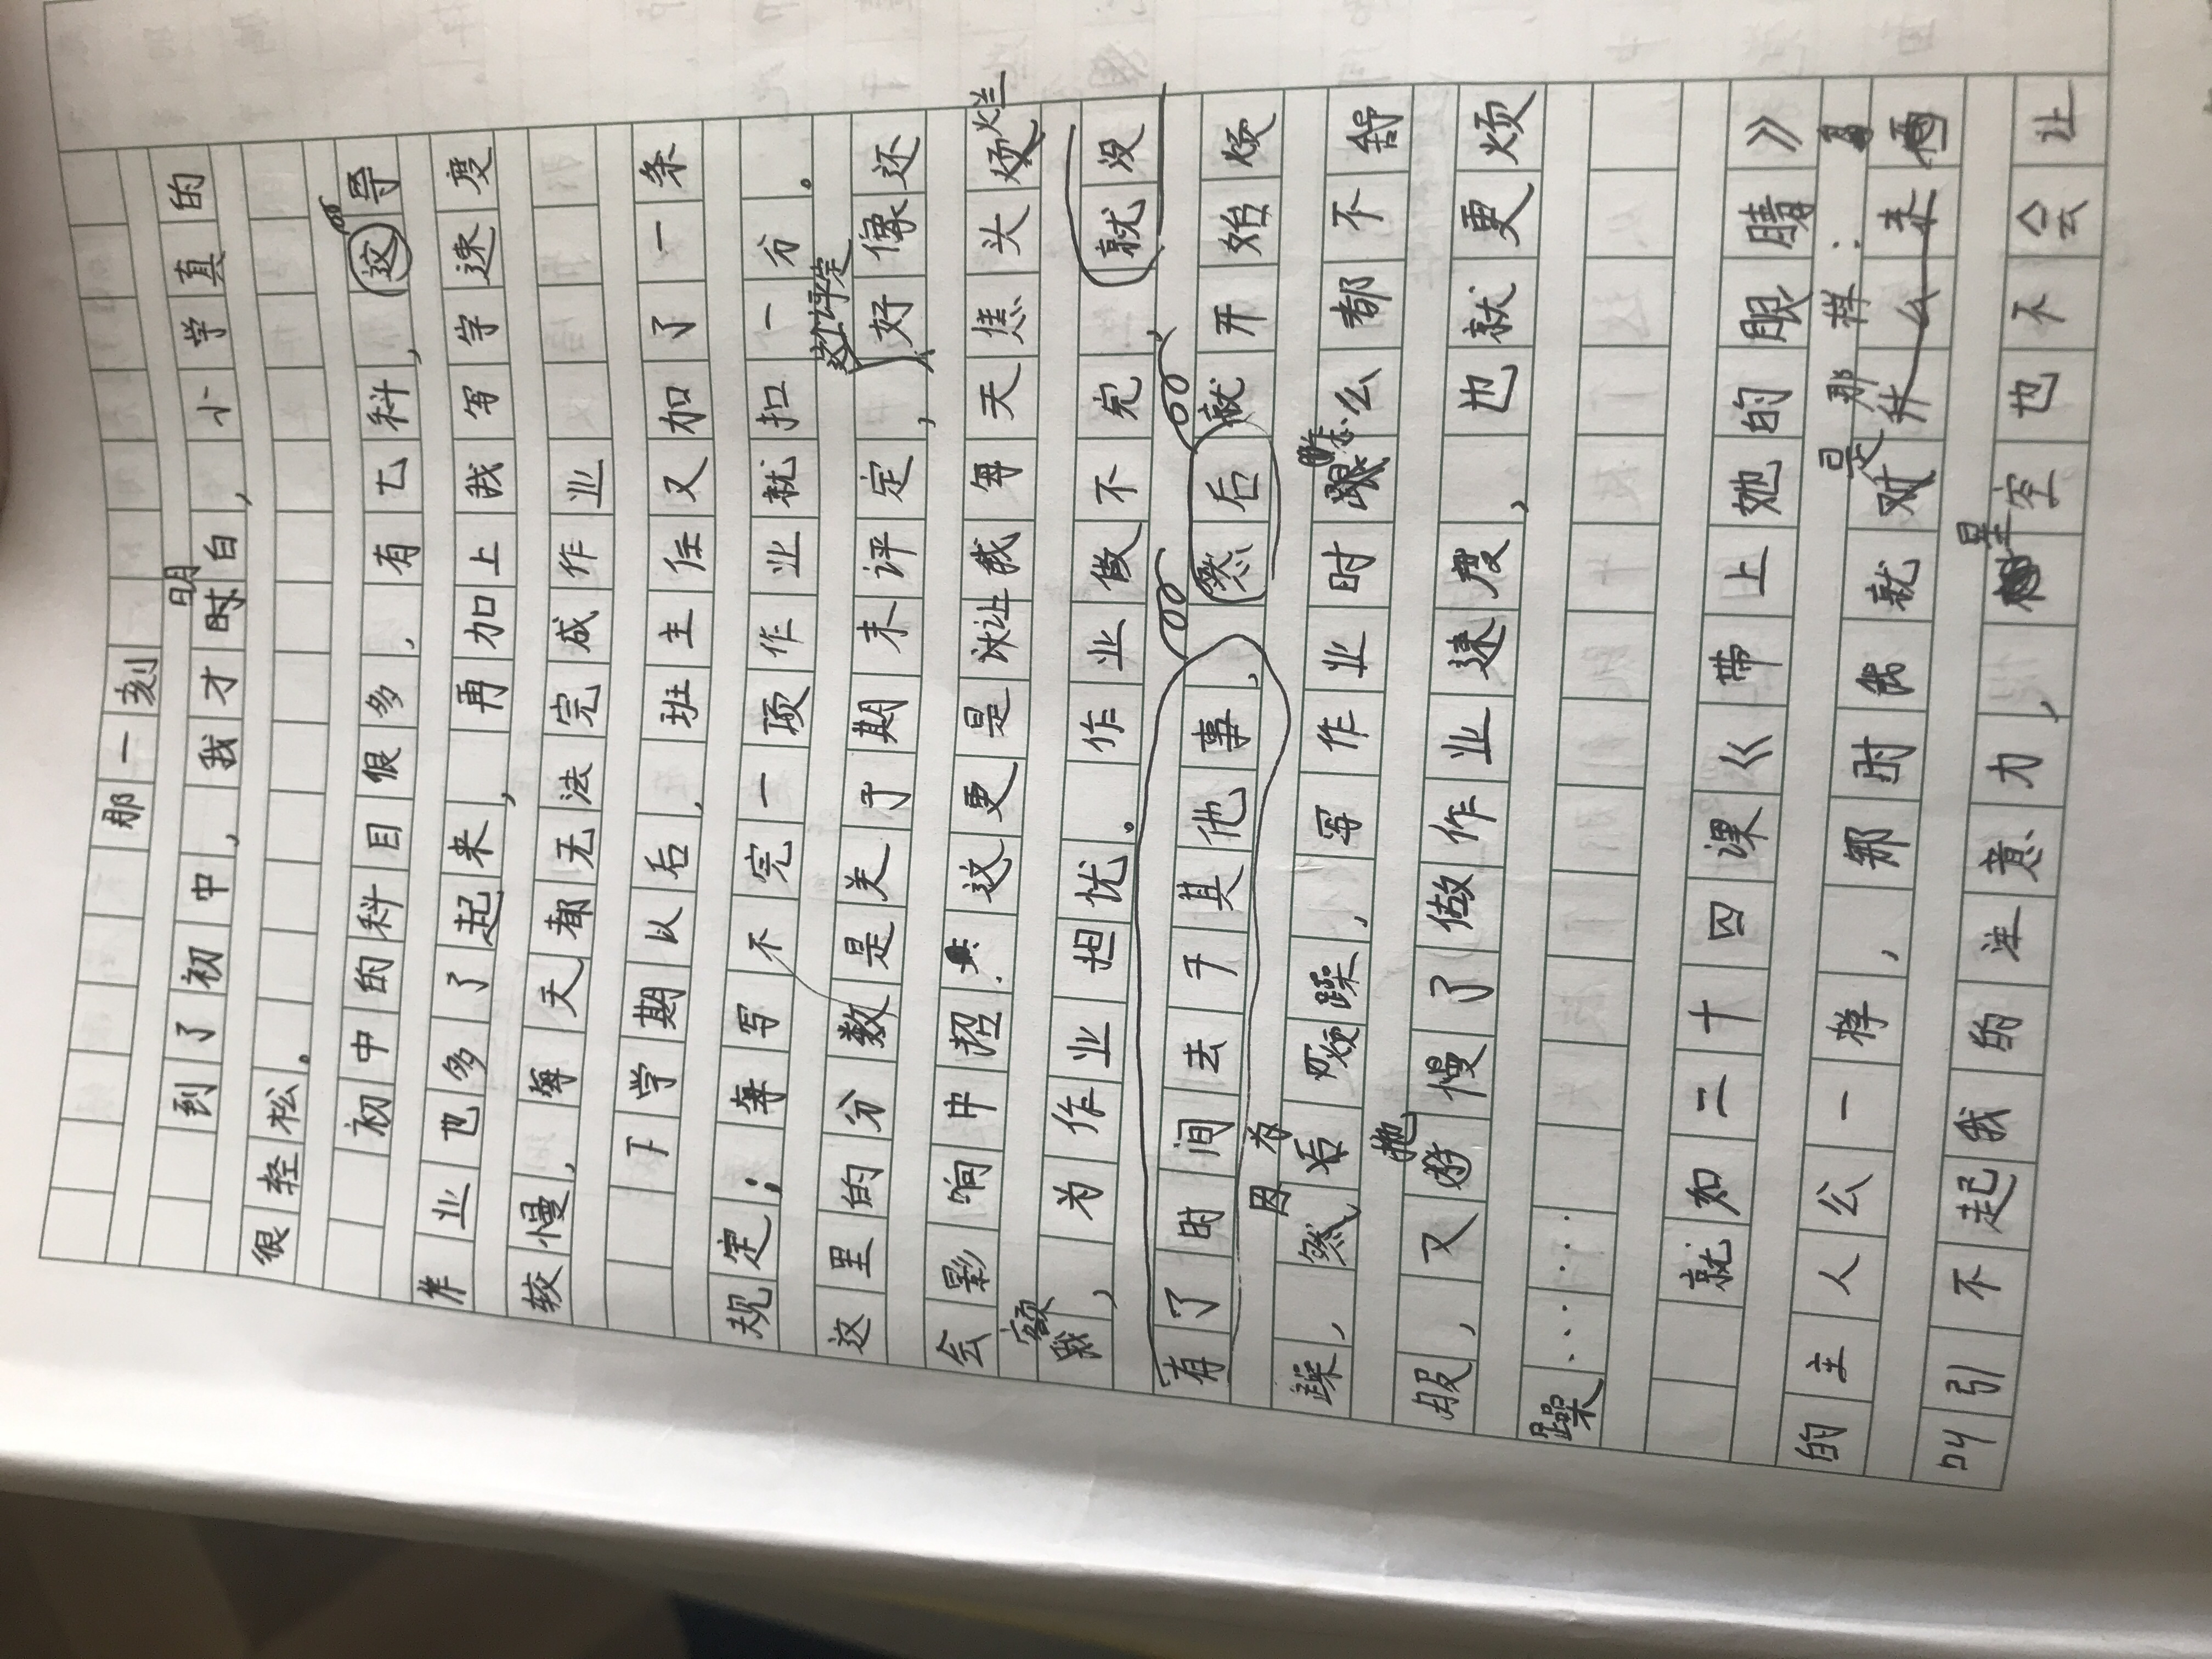 那一刻
到了初中，我才明白，小学真的
很轻松。
初中的科目很多，有七科，这导
作业也多了起来，再加上我写字速度
较慢，每天都无法完成作业
下学期以后，班主任又加了一条
规定；每写不完一项作业就扣一分。
这里的分数是关于期末评定，这个评定好像还
会影响中招。这更是让我每天焦头烂
额，为作业担忧。作业做不完，就没
有了时间去干其他事，然后就开始烦
躁，因为然后烦躁，写作业时怎么都不舒
服，又拖慢了做作业速度，也就更烦
躁……
就如二十四课《带上她的眼睛》
的主人公一样，那时我就是那样：
叫引不起我的注意力，星空也不会让